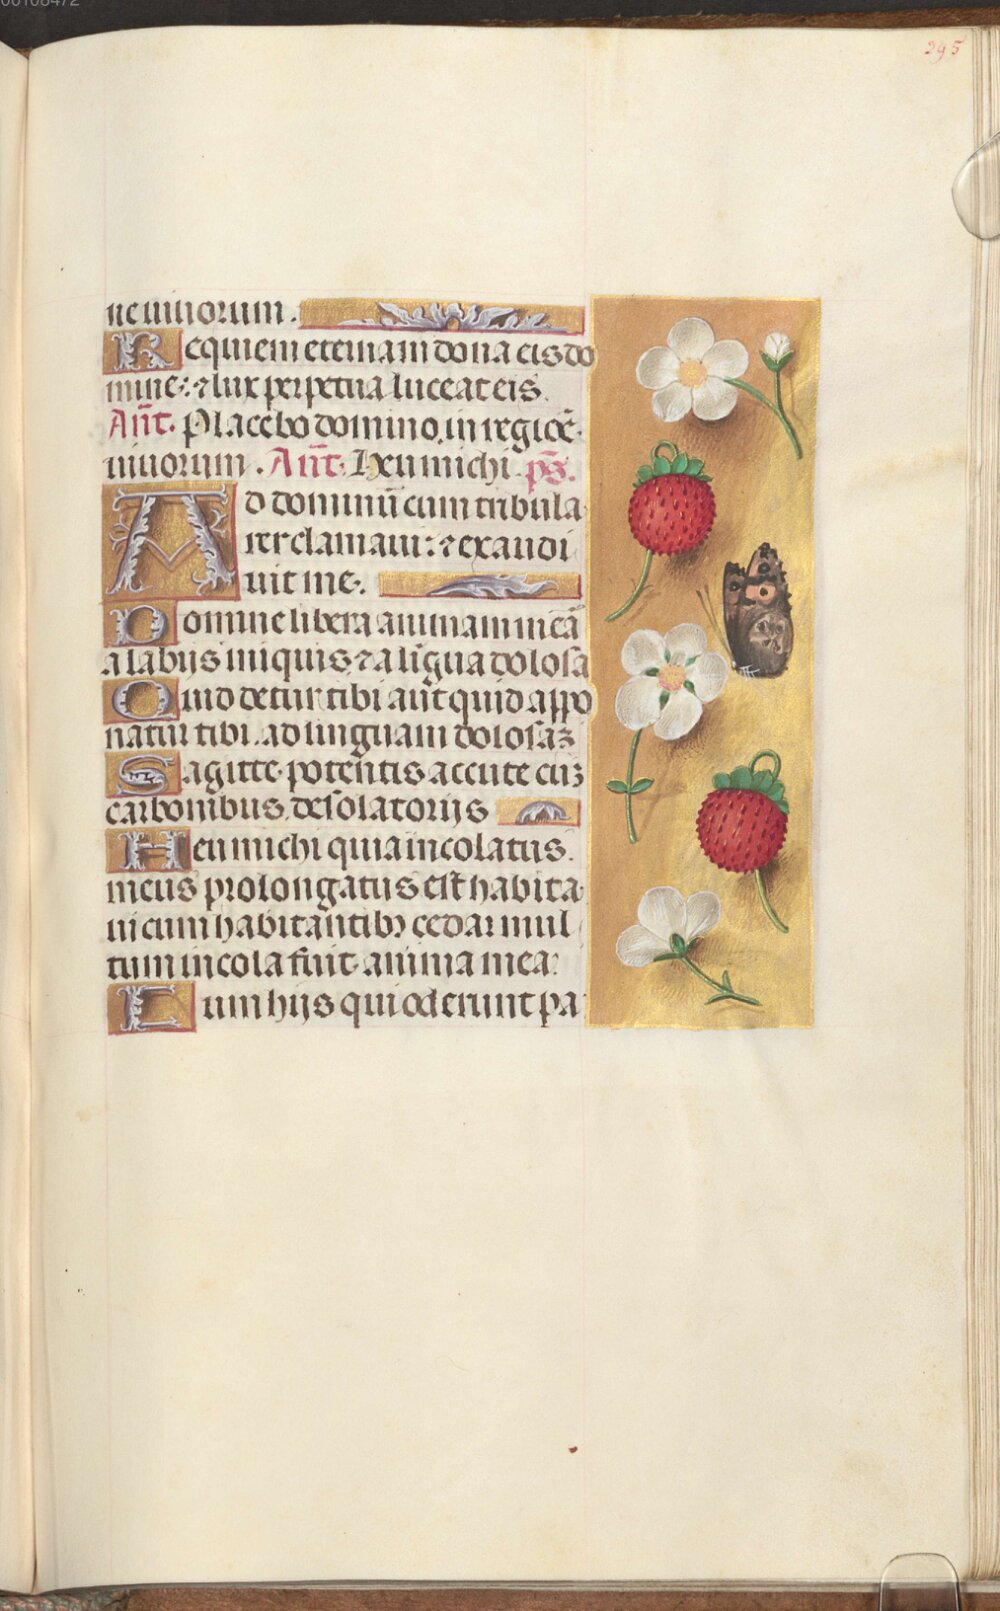 00108472
295
ne viuorum.
Requiem eternam dona eis do
mine: ⁊ lux perpetua luceat eis.
Añt. Placebo domino in regiõe
viuorum. Añt. Heu michi. ps̃.
Ad dominũ cum tribula
rer clamaui: ⁊ exaudi
uit me.
Domine libera animam meã
a labijs iniquis ⁊ a lĩgua dolosa
Quid detur tibi aut quid appo
natur tibi ad linguam dolosaꝫ
Sagitte potentis accute cuꝫ
carbonibus desolatorijs
Heu michi quia incolatus
meus prolongatus est habita
ui cum habitantibꝰ cedar mul
tum incola fuit anima mea.
Cum hijs qui oderunt pa